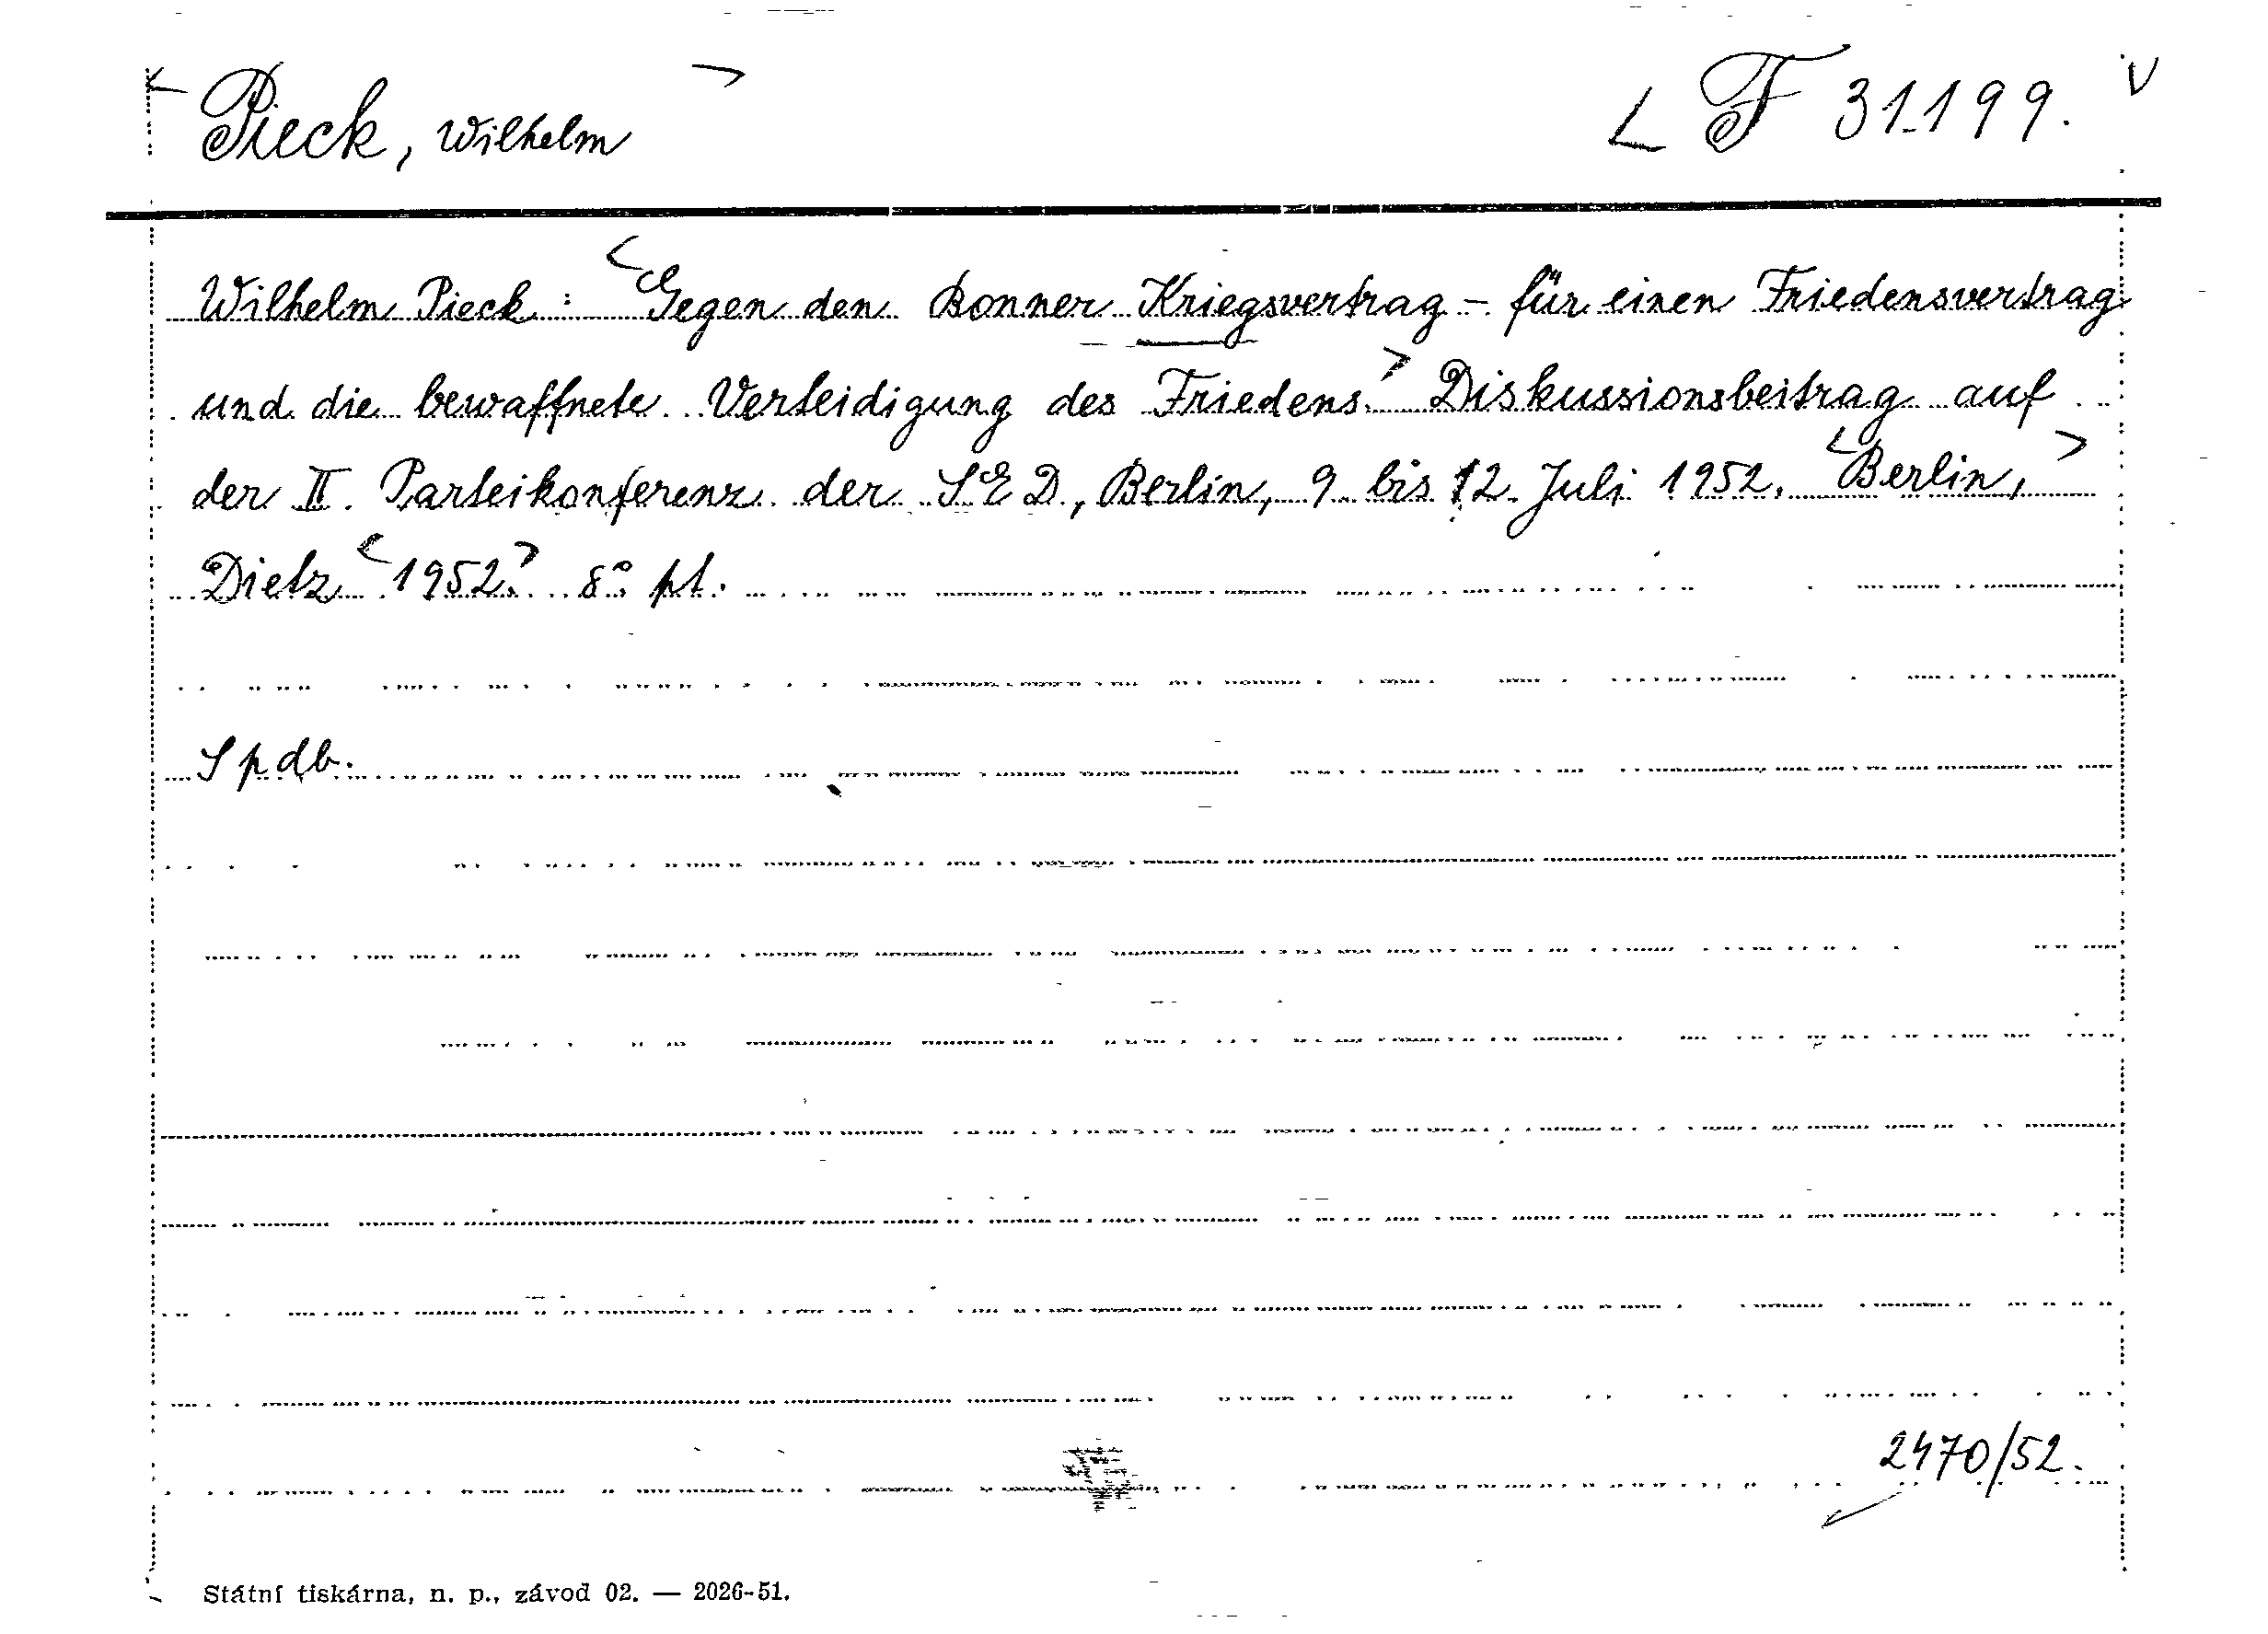 Pieck, Wilhelm
F 31.199.
Wilhelm Pieck: Gegen den Bonner Kriegsvertrag - für einen Friedensvertrag
und die bewaffnete Verteidigung des Friedens. Diskussionsbeitrag auf
der II. Parteikonferenz der SED, Berlin, 9 bis 12. Juli 1952. Berlin,
Dietz 1952. 8° pt.
Spdb.
2470/52.
Státní tiskárna, n. p., závod 02. — 2026-51.